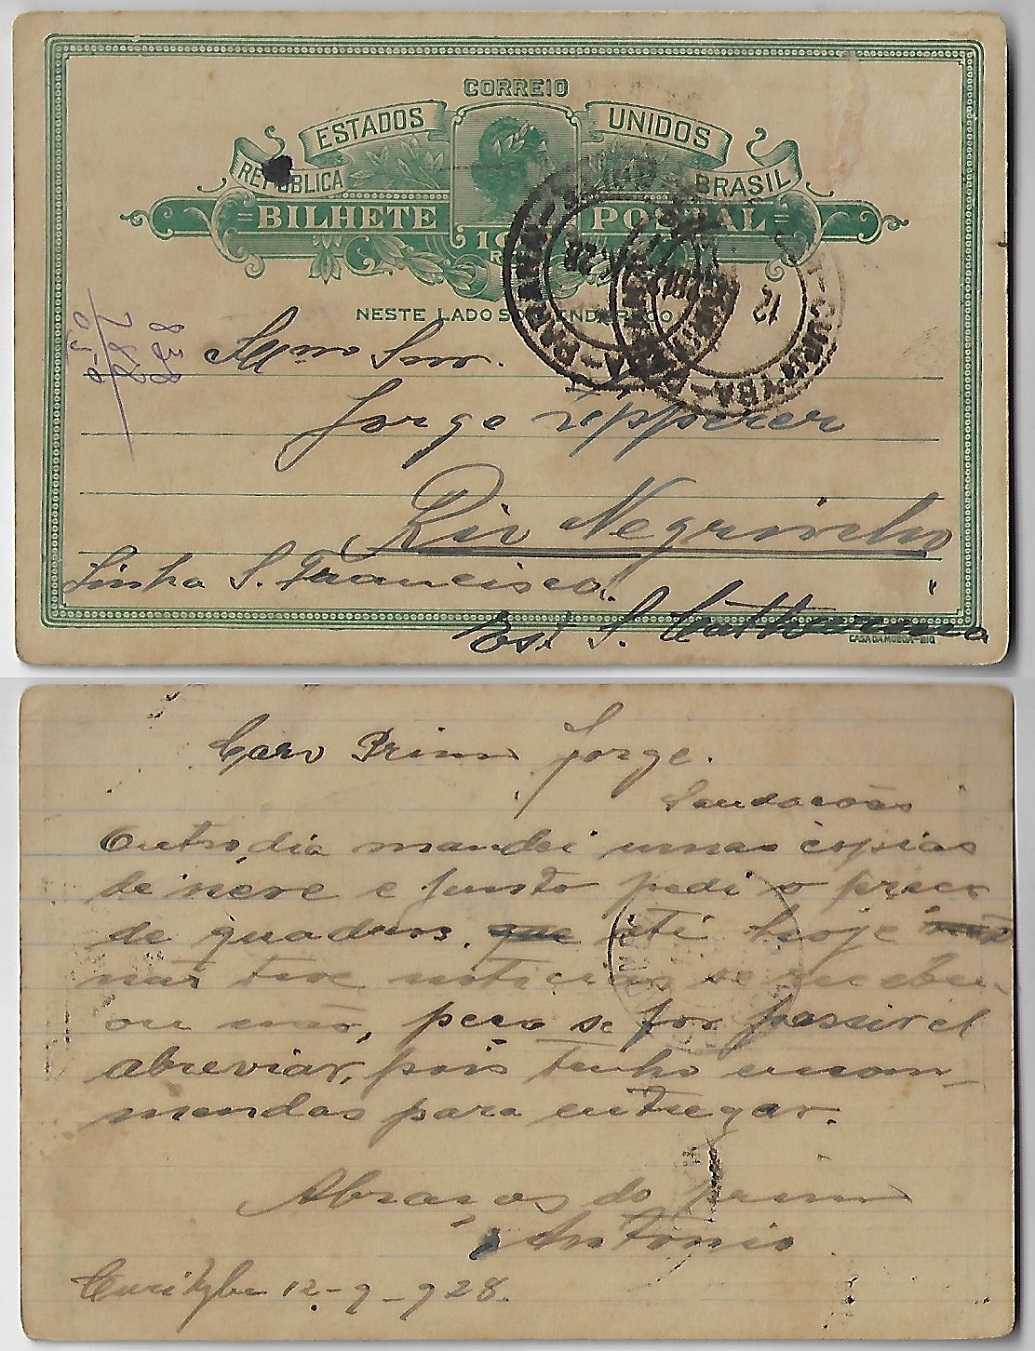 CORREIO
ESTADOS UNIDOS
REPUBLICA BRASIL
BILHETE POSTAL
NESTE LADO SÓ O ENDEREÇO
Illmo Snr.
Jorge Zipperer
Rio Negrinho
Linha S. Francisco.
Est S. Catharina
CASA DA MOEDA-RIO
Caro Primo Jorge.
Saudacões
Outro dia mandei umas copias
de neve e junto pedi o preco
de quadros. até hoje
não tive noticias se recebeu
ou não, peco se for possivel
abreviar, pois tenho encom-
mendas para entregar.
Abraços do primo
Antonio
Curityba 12-9-928.